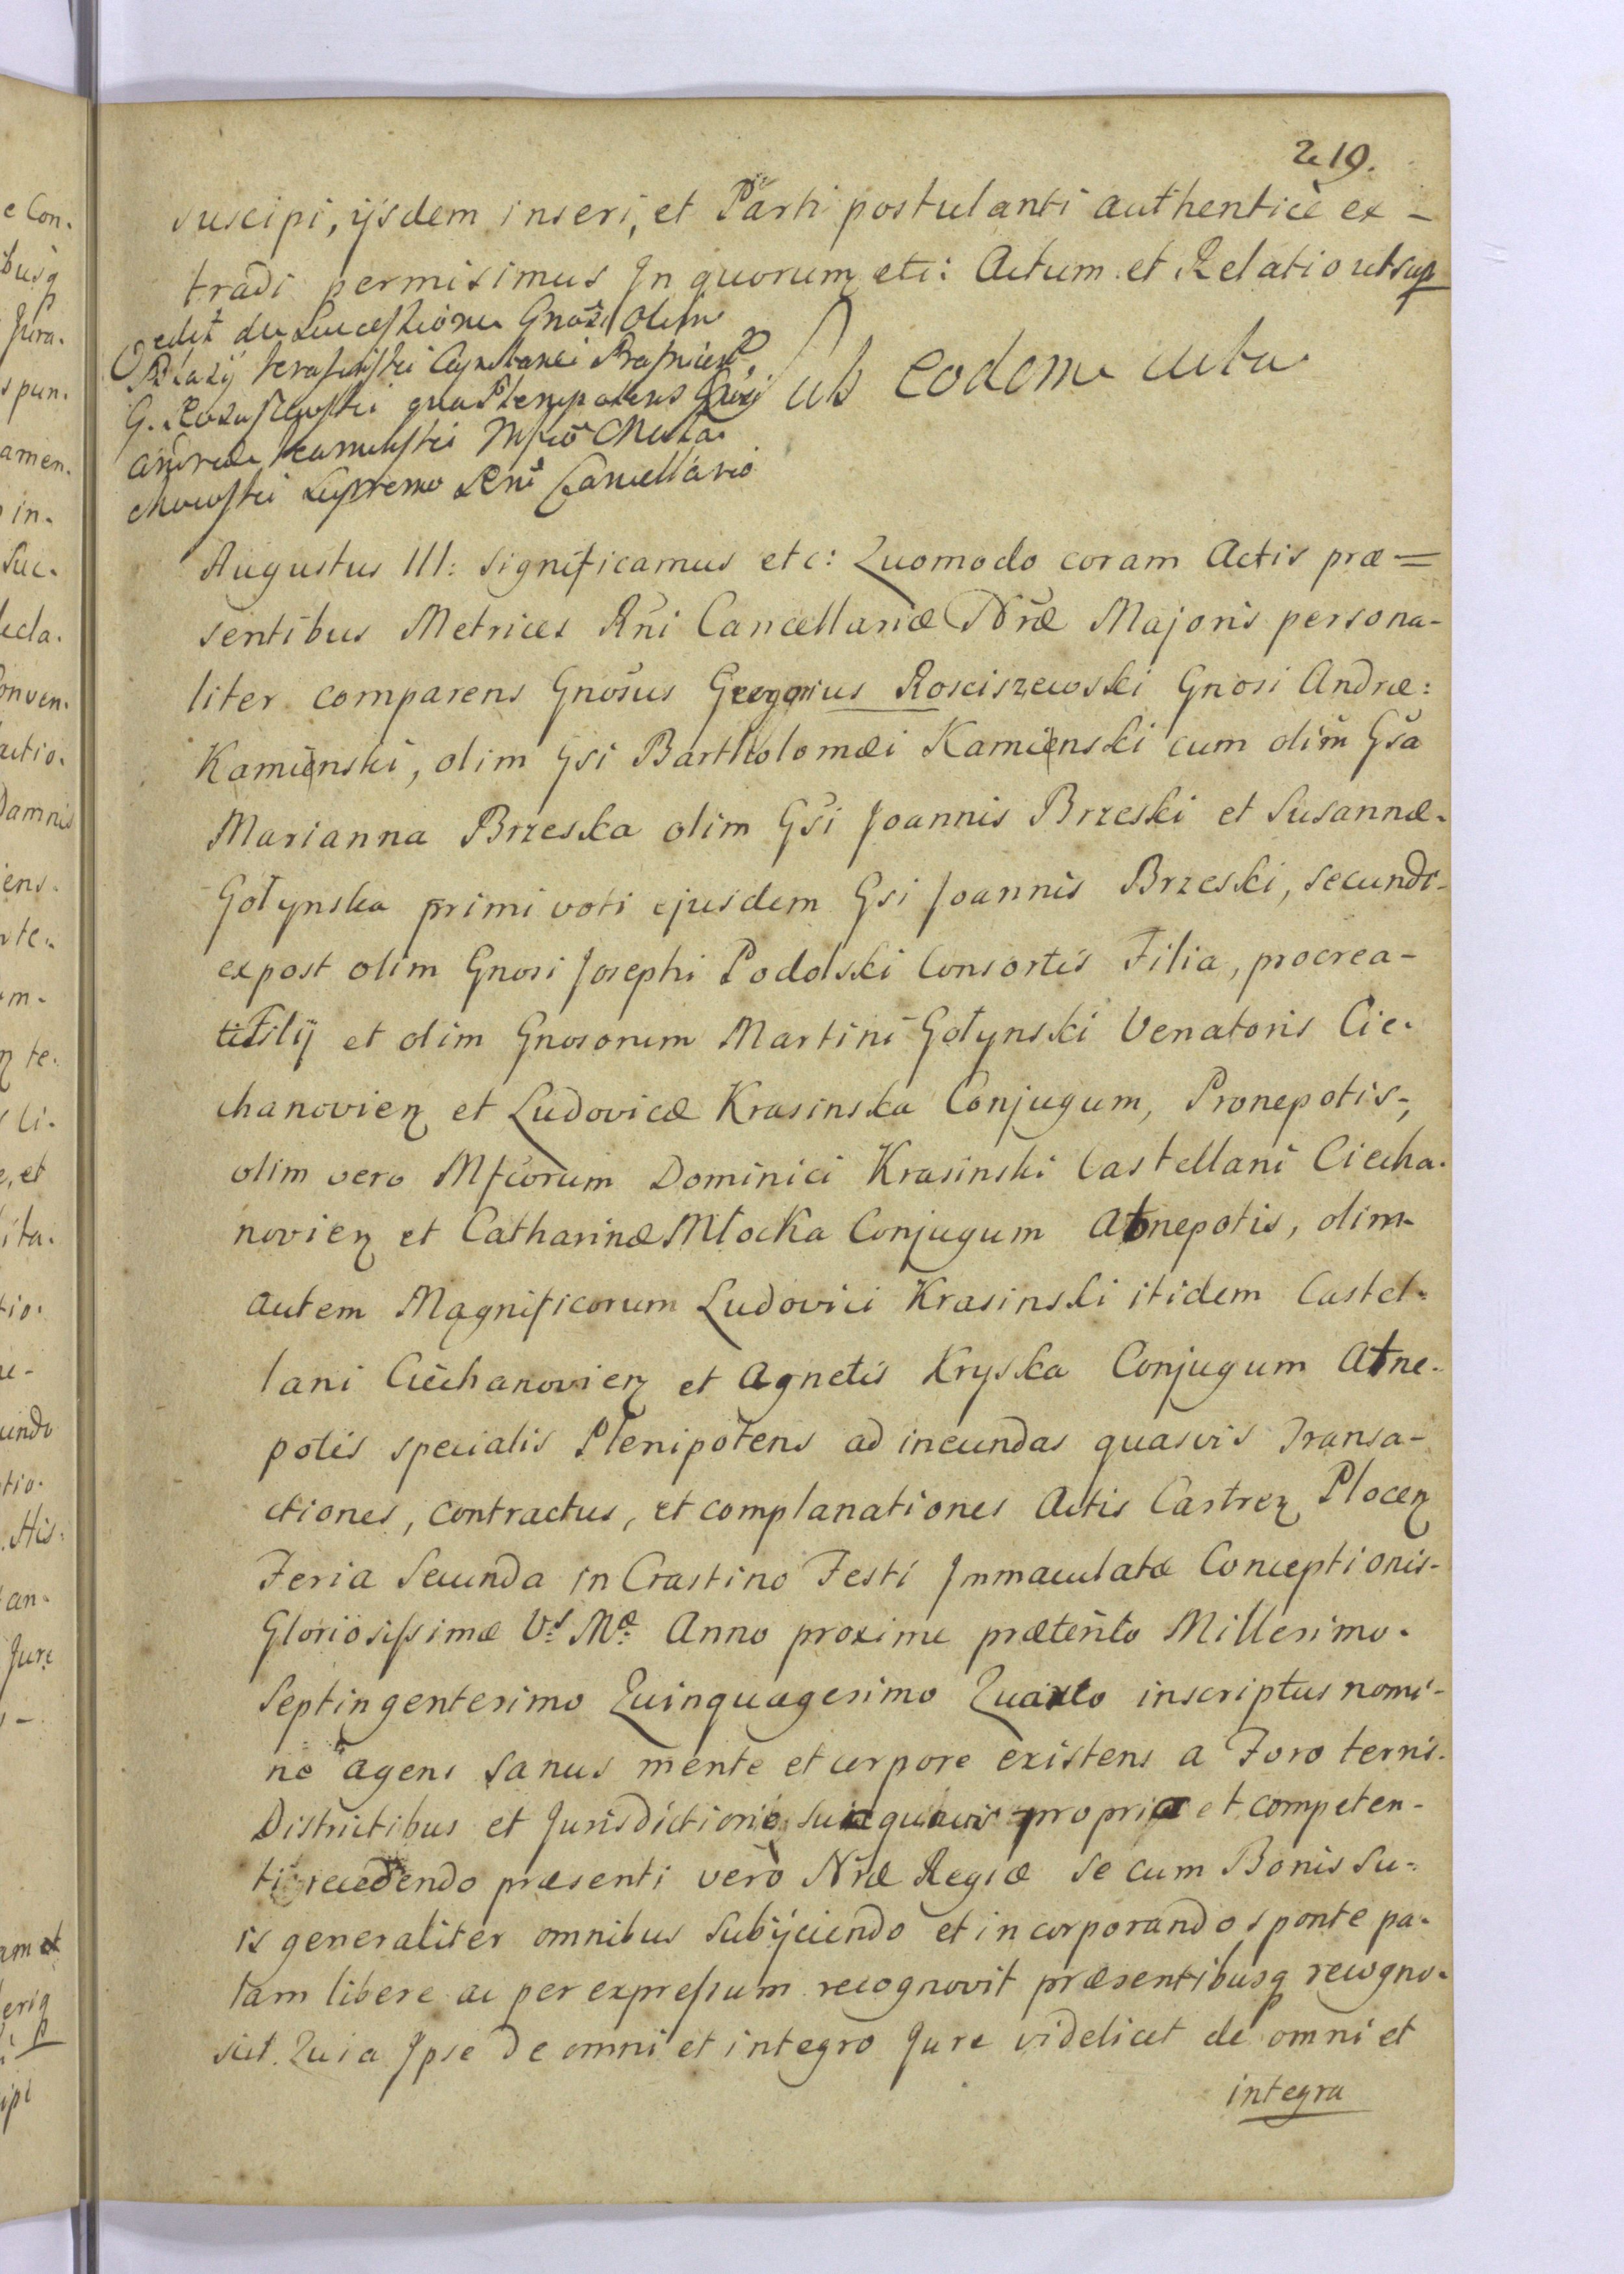 219.
suscipi, ijsdem inseri, et Parti postulanti authenticè ex-
tradi permisimus Jn quorum etc: Actum et Relatio ut sup
Cedit de Successione Gnosi olim
Blasij Krasinski Capitanei Prasnien
G. Rosciszewski qua Plenipotens Gnosi
Andreæ Kamienski Mfco Mala
chowski Supremo Rni Cancellario
Sub eodem actu
Augustus III: significamus etc: Quomodo coram Actis præ=
sentibus Metrices Rñi Cancellariæ Nræ Majoris persona-
liter comparens Gnosus Gregorius Rosciszewski Gnosi Andræ:
Kamienski, olim Gsi Bartholomæi Kamienski cum olim Gsa
Marianna Brzeska olim Gsi Joannis Brzeski et Susannæ.
Gołynska primi voti ejusdem Gsi Joannis Brzeski, secundi-
expost olim Gnosi Josephi Podolski Consortis Filia, procrea-
ti Filij et olim Gnosorum Martini Gołynski Venatoris Cie.
chanovien et Ludovicæ Krasinska Conjugum, Pronepotis-,
olim vero Mfcorum Dominici Krasinski Castellani Ciecha.
novien et Catharinæ Młocka Conjugum Abnepotis, olim-
autem Magnificorum Ludovici Krasinski itidem Castel-
lani Ciechanovien et Agnetis Kryska Conjugum Atne-
potis specialis Plenipotens ad ineundas quasvis Transa-
ctiones, contractus, et complanationes Actis Castren Plocen
Feria Secunda in Crastino Festi Jmmaculatæ Conceptionis-
Gloriosissimæ V.s M.æ Anno proxime præterito Millesimo.
Septingentesimo Quinquagesimo Quarto inscriptus nomi-
ne agens sanus mente et corpore existens a Foro terris.
Districtibus et Jurisdictione sua quavis propria et competen-
ti recedendo præsenti verò Nræ Regiæ se cum Bonis su-
is generaliter omnibus Subijciendo et incorporando sponte pa-
lam libere ac per expressum recognovit præsentibusq recogno-
scit. Quia Jpse de omni et integro Jure videlicet de omni et
integra